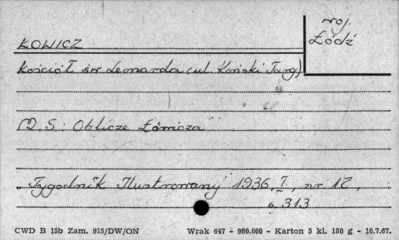 woj.
Łódź
ŁOWICZ
Kościół św. Leonarda (ul. Koński Targ)
M.S.: Oblicze Łowicza
"Tygodnik Ilustrowany" 1936, I, nr 12,
s. 313
CWD B 15b Zam. 915/DW/ON Wrak 647 - 980.000 - Karton 5 kl. 180 g - 10.7.67.